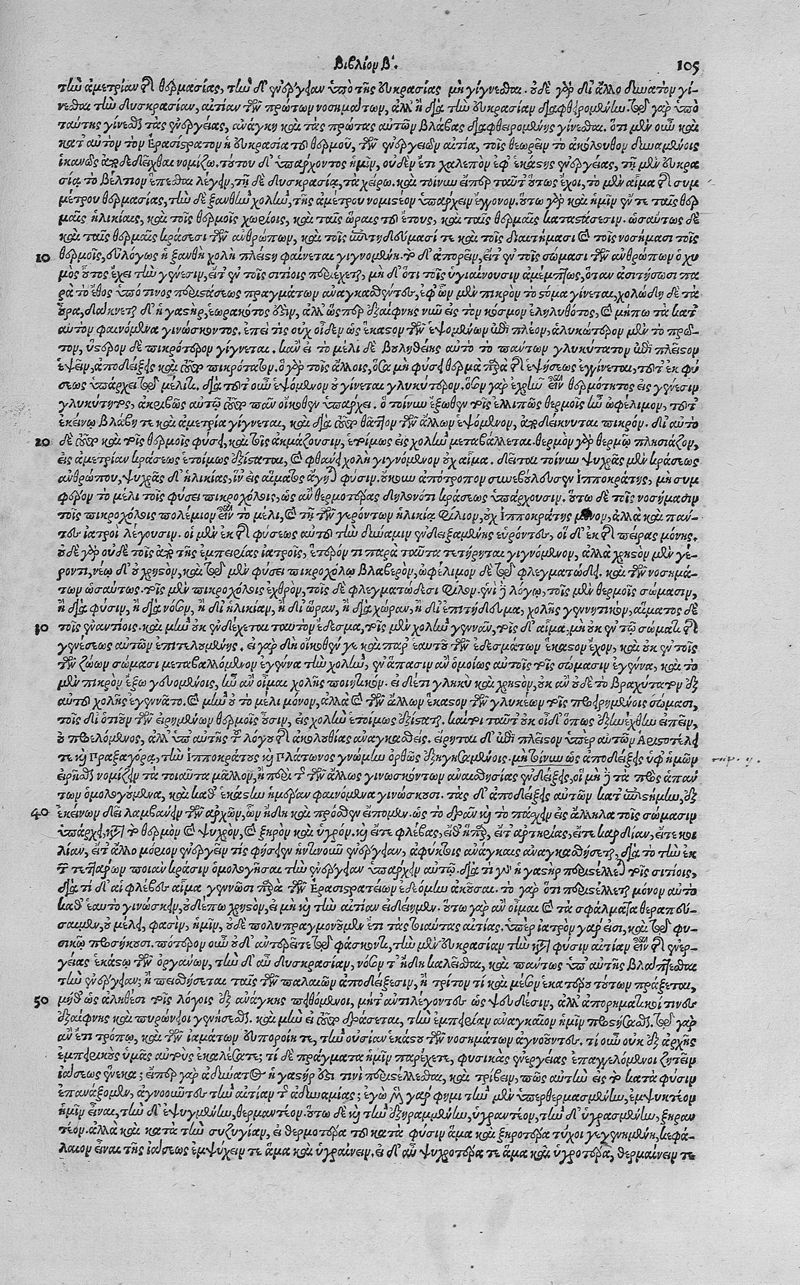 Βιβλίον Β'. 105
τὴν ἀμετρίαν τῆς θερμασίας, τὴν δ' ἐνέργειαν ὑπὸ τῆς εὐκρασίας μὴ γίγνεσθαι. οὐδὲ γὰρ δι' ἄλλο δυνατὸν γί-
νεσθαι τὴν δυσκρασίαν, αἰτίαν τῶν πρώτων νοσημάτων, ἀλλ' ἢ διὰ τὴν εὐκρασίαν διαφθειρομένην. τῷ γὰρ ὑπὸ
ταύτης γίνεσθαι τὰς ἐνεργείας, ἀνάγκη καὶ τὰς πρώτας αὐτῶν βλάβας διαφθειρομένης γίνεσθαι. ὅτι μὲν οὖν καὶ
κατ' αὐτὸν τὸν Ἐρασίστρατον ἡ εὐκρασία τοῦ θερμοῦ, τῶν ἐνεργειῶν αἰτία, τοῖς θεωρεῖν τὸ ἀκόλουθον δυναμένοις
ἱκανῶς ἀποδεδεῖχθαι νομίζω. τούτου δ' ὑπάρχοντος ἡμῖν, οὐδὲν ἔτι χαλεπὸν ἐφ' ἑκάστης ἐνεργείας, τῇ μὲν εὐκρα-
σίᾳ τὸ βέλτιον ἕπεσθαι λέγειν, τῇ δὲ δυσκρασίᾳ, τὰ χείρω. καὶ τοίνυν εἴπερ ταῦθ' οὕτως ἔχει, τὸ μὲν αἷμα τῆς συμ
μέτρου θερμασίας, τὴν δὲ ξανθὴν χολὴν, τῆς ἀμέτρου νομιστέον ὑπάρχειν ἔγγονον. οὕτω γὰρ καὶ ἡμῖν ἔν τε ταῖς θερ
μαῖς ἡλικίαις, καὶ τοῖς θερμοῖς χωρίοις, καὶ ταῖς ὥραις τοῦ ἔτους, καὶ ταῖς θερμαῖς καταστάσεσιν. ὡσαύτως δὲ
καὶ ταῖς θερμαῖς κράσεσι τῶν ἀνθρώπων, καὶ τοῖς ἐπιτηδεύμασί τε καὶ τοῖς διαιτήμασι καὶ τοῖς νοσήμασι τοῖς
10 θερμοῖς, εὐλόγως ἡ ξανθὴ χολὴ πλείστη φαίνεται γιγνομένη. τὸ δ' ἀπορεῖν, εἴτ' ἐν τοῖς σώμασι τῶν ἀνθρώπων ὁ χυ
μὸς οὗτος ἔχει τὴν γένεσιν, εἴτ' ἐν τοῖς σιτίοις περιέχεται, μὴ δ' ὅτι τοῖς ὑγιαίνουσιν ἀμέμπτως, ὅταν ἀσιτήσωσι πα
ρὰ τὸ ἔθος ὑπό τινος περιστάσεως πραγμάτων ἀναγκασθέντες, ἐφ' ὧν μὲν πικρὸν τὸ στόμα γίνεται, χολώδη δὲ τὰ
οὖρα, διαδάκνεται δ' ἡ γαστήρ, ἑωρακότος ἐστὶν, ἀλλ' ὥσπερ ἐξαίφνης νῦν εἰς τὸν κόσμον ἐληλυθότος, καὶ μήπω τὰ κατ'
αὐτὸν φαινόμενα γινώσκοντος. ἐπεὶ τίς οὐχ οἶδεν ὡς ἕκαστον τῶν ἑψομένων ἐπὶ πλέον, ἁλυκώτερον μὲν τὸ πρῶ-
τον, ὕστερον δὲ πικρότερον γίγνεται. κἂν εἰ τὸ μέλι δὲ βουληθείης αὐτὸ τὸ πάντων γλυκύτατον ἐπὶ πλεῖστον
ἕψειν, ἀποδείξεις καὶ τοῦτο πικρότατον. ὃ γὰρ τοῖς ἄλλοις, ὅσα μὴ φύσει θερμὰ παρὰ τῆς ἑψήσεως ἐγγίνεται, τοῦτ' ἐκ φύ
σεως ὑπάρχει τῷ μέλιτι. διὰ τοῦτ' οὖν ἑψόμενον οὐ γίνεται γλυκύτερον. ὅσον γὰρ ἐχρῆν εἶναι θερμότητος εἰς γένεσιν
γλυκύτητος, ἀκριβῶς αὐτῷ τοῦτο πᾶν οἴκοθεν ὑπάρχει. ὃ τοίνυν ἔξωθεν τοῖς ἐλλιπῶς θερμοῖς ἦν ὠφέλιμον, τοῦτ'
ἐκείνῳ βλάβη τε καὶ ἀμετρία γίγνεται, καὶ διὰ τοῦτο θᾶττον τῶν ἄλλων ἑψόμενον, ἀποδείκνυται πικρόν. δι' αὐτὸ
20 δὲ τοῦτο καὶ τοῖς θερμοῖς φύσει, καὶ τοῖς ἀκμάζουσιν, ἑτοίμως εἰς χολὴν μεταβάλλεται. θερμὸν γὰρ θερμῷ πλησιάζον,
εἰς ἀμετρίαν κράσεως ἑτοίμως ἐξίσταται, καὶ φθάνει χολὴ γιγνόμενον οὐχ αἷμα. δεῖται τοίνυν ψυχρᾶς μὲν κράσεως
ἀνθρώπου, ψυχρᾶς δ' ἡλικίας, ἵν' εἰς αἵματος ἄγηται φύσιν. οὔκουν ἀπὸ τρόπου συνεβούλευσεν Ἱπποκράτης, μὴ συμ
φέρειν τὸ μέλι τοῖς φύσει πικροχόλοις, ὡς ἂν θερμοτέρας δηλονότι κράσεως ὑπάρχουσιν. οὕτω δὲ τοῖς νοσήμασιν
τοῖς πικροχόλοις πολέμιον εἶναι τὸ μέλι, καὶ τῇ τῶν γερόντων ἡλικίᾳ φίλιον, οὐχ Ἱπποκράτης μόνον, ἀλλὰ καὶ παν-
τες ἰατροὶ λέγουσιν. οἱ μὲν ἐκ τῆς φύσεως αὐτοῦ τὴν δύναμιν ἐνδειξαμένης εὑρόντες, οἱ δ' ἐκ τῆς πείρας μόνης.
οὐδὲ γὰρ οὐδὲ τοῖς ἀπὸ τῆς ἐμπειρίας ἰατροῖς, ἕτερόν τι παρὰ ταῦτα τετήρηται γιγνόμενον, ἀλλὰ χρηστὸν μὲν γέ-
ροντι, νέῳ δ' οὐ χρηστὸν, καὶ τῷ μὲν φύσει πικροχόλῳ βλαβερὸν, ὠφέλιμον δὲ τῷ φλεγματώδει. καὶ τῶν νοσημά-
των ὡσαύτως. τοῖς μὲν πικροχόλοις ἐχθρὸν, τοῖς δὲ φλεγματώδεσι φίλον. ἑνὶ δὲ λόγῳ, τοῖς μὲν θερμοῖς σώμασιν,
ἢ διὰ φύσιν, ἢ διὰ νόσον, ἢ δι' ἡλικίαν, ἢ δι' ὥραν, ἢ διὰ χώραν, ἢ δι' ἐπιτήδευμα, χολῆς γεννητικὸν, αἵματος δὲ
30 τοῖς ἐναντίοις. καὶ μὴν οὐκ ἐνδέχεται ταυτὸν ἔδεσμα, τοῖς μὲν χολὴν γεννᾶν, τοῖς δ' αἷμα. μὴ οὐκ ἐν τῷ σώματι τῆς
γενέσεως αὐτῶν ἐπιτελουμένης. εἰ γὰρ δὴ οἴκοθέν γε καὶ παρ' ἑαυτοῦ τῶν ἐδεσμάτων ἕκαστον ἔχον, καὶ οὐκ ἐν τοῖς
τῶν ζώων σώμασι μεταβαλλόμενον ἐγέννα τὴν χολὴν, ἐν ἅπασιν ἂν ὁμοίως αὐτοῖς τοῖς σώμασιν ἐγέννα, καὶ τὸ
μὲν πικρὸν ἔξω γευομένοις, ἦν ἂν οἶμαι χολῆς ποιητικόν. εἰ δέ τι γλυκὺ καὶ χρηστὸν, οὐκ ἂν οὐδὲ τὸ βραχύτατον ἐξ
αὐτοῦ χολῆς ἐγεννᾶτο. καὶ μὴν οὐ τὸ μέλι μόνον, ἀλλὰ καὶ τῶν ἄλλων ἕκαστον τῶν γλυκέων τοῖς προειρημένοις σώμασι,
τοῖς δι' ὁτιοῦν τῶν εἰρημένων θερμοῖς οὖσιν, εἰς χολὴν ἑτοίμως ἐξίσταται. καί τοι ταῦτ' οὐκ οἶδ' ὅπως ἐξηνέχθην εἰπεῖν,
οὐ προελόμενος, ἀλλ' ὑπ' αὐτῆς τοῦ λόγου τῆς ἀκολουθίας ἀναγκασθείς. εἴρηται δ' ἐπὶ πλεῖστον ὑπὲρ αὐτῶν Ἀριστοτέλει
τε καὶ Πραξαγόρᾳ, τὴν Ἱπποκράτους καὶ Πλάτωνος γνώμην ὀρθῶς ἐξηγησαμένοις. μὴ τοίνυν ὡς ἀποδείξεις ὑφ' ἡμῶν
εἰρῆσθαι νομίζειν τὰ τοιαῦτα μᾶλλον, ἢ περὶ τῆς τῶν ἄλλως γινωσκόντων ἀναισθησίας ἐνδείξεις, οἳ μὴ δὲ τὰ πρὸς ἁπάν
των ὁμολογούμενα, καὶ καθ' ἑκάστην ἡμέραν φαινόμενα γινώσκουσι. τὰς δ' ἀποδείξεις αὐτῶν κατ' ἐπιστήμην, ἐξ
40 ἐκείνων δεῖ λαμβάνειν τῶν ἀρχῶν, ὧν ἤδη καὶ πρόσθεν εἴπομεν. ὡς τὸ δρᾶν καὶ τὸ πάσχειν εἰς ἄλληλα τοῖς σώμασιν
ὑπάρχει, κατὰ τὸ θερμὸν καὶ ψυχρὸν, καὶ ξηρὸν καὶ ὑγρόν. καὶ εἴτε φλέβας, εἴθ' ἧπαρ, εἴτ' ἀρτηρίας, εἴτε καρδίαν, εἴτε κοι
λίαν, εἴτ' ἄλλο μόριον ἐνεργεῖν τις φήσειεν ἡντινοῦν ἐνέργειαν, ἀφύκτοις ἀνάγκαις ἀναγκασθήσεται, διὰ τὸ τὴν ἐκ
τῶν τεττάρων ποιὰν κρᾶσιν ὁμολογῆσαι τὴν ἐνέργειαν ὑπάρχειν αὐτῷ. διὰ τί γὰρ ἡ γαστὴρ περιστέλλεται τοῖς σιτίοις,
διὰ τί δ' αἱ φλέβες αἷμα γεννῶσι παρὰ τῶν Ἐρασιστρατείων ἐδεόμην ἀκοῦσαι. τὸ γὰρ ὅτι περιστέλλεται μόνον αὐτὸ
καθ' ἑαυτὸ γινώσκειν, οὐδέπω χρηστὸν, εἰ μὴ καὶ τὴν αἰτίαν εἰδείημεν. οὕτω γὰρ ἂν οἶμαι καὶ τὰ σφάλματα θεραπεύ-
σαιμεν. οὐ μέλει, φασὶν, ἡμῖν, οὐδὲ πολυπραγμονοῦμεν ἔτι τὰς τοιαύτας αἰτίας. ὑπὲρ ἰατρὸν γάρ εἰσι, καὶ τῷ φυ-
σικῷ προσήκουσι. πότερον οὖν οὐδ' ἀντερεῖτε τῷ φάσκοντι, τὴν μὲν εὐκρασίαν τὴν κατὰ φύσιν αἰτίαν εἶναι τῆς ἐνερ-
γείας ἑκάστῳ τῶν ὀργάνων, τὴν δ' αὖ δυσκρασίαν, νόσον τ' ἤδη καλεῖσθαι, καὶ πάντως ὑπ' αὐτῆς βλάπτεσθαι
τὴν ἐνέργειαν; ἢ πεισθήσεσθε ταῖς τῶν παλαιῶν ἀποδείξεσιν, ἢ τρίτον τι καὶ μέσον ἑκατέρου τούτων πράξετε,
50 μήθ' ὡς ἀληθέσι τοῖς λόγοις ἐξ ἀνάγκης πειθόμενοι, μήτ' ἀντιλέγοντες ὡς ψευδέσιν, ἀλλ' ἀπορηματικοί τινες
ἐξαίφνης καὶ πυρώνειοι γενήσεσθε. καὶ μὴν εἰ τοῦτο δράσετε, τὴν ἐμπειρίαν ἀναγκαῖον ἡμῖν προστήσασθαι. τῷ γὰρ
ἂν ἔτι τρόπῳ, καὶ τῶν ἰαμάτων εὐποροίητε, τὴν οὐσίαν ἑκάστου τῶν νοσημάτων ἀγνοοῦντες. τί οὖν οὐκ ἐξ ἀρχῆς
ἐμπειρικοὺς ὑμᾶς αὐτοὺς ἐκαλέσατε; τί δὲ πράγματα ἡμῖν παρέχετε, φυσικὰς ἐνεργείας ἐπαγγελλόμενοι ζητεῖν
ἰάσεως ἕνεκα; εἴπερ γὰρ ἀδύνατος ἡ γαστήρ ἐστί τινι περιστέλλεσθαι, καὶ τρίβειν, πῶς αὐτὴν εἰς τὸ κατὰ φύσιν
ἐπανάξομεν, ἀγνοοῦντες τὴν αἰτίαν τῆς ἀδυναμίας; ἐγὼ μὲν γάρ φημι τὴν μὲν ὑπερτεθερμασμένην, ἐμψυκτέον
ἡμῖν εἶναι, τὴν δ' ἐψυγμένην, θερμαντέον. οὕτω δὲ καὶ τὴν ἐξηραμμένην, ὑγραντέον, τὴν δ' ὑγρασμένην, ξηραν
τέον. ἀλλὰ καὶ κατὰ τὴν συζυγίαν, εἰ θερμοτέρα τοῦ κατὰ φύσιν ἅμα καὶ ξηροτέρα τύχοι γεγενημένη, κεφά-
λαιον εἶναι τῆς ἰάσεως ἐμψύχειν τε ἅμα καὶ ὑγραίνειν. εἰ δ' αὖ ψυχροτέρα τε ἅμα καὶ ὑγροτέρα, θερμαίνειν τε